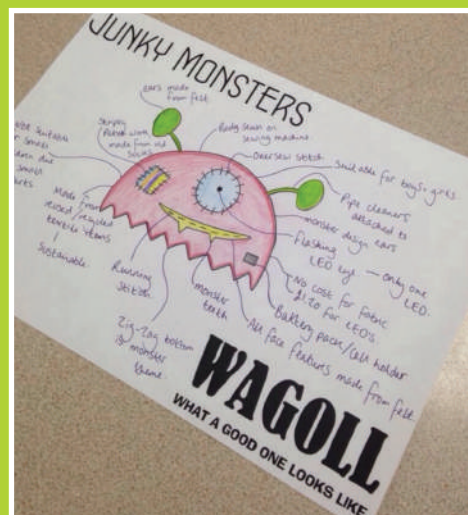 JUNKY MONSTERS
ears made
from felt.
Stripey
Patch work
made from old
socks.
Body sewn on
sewing machine.
Oversew stitch
Suitable for boys + girls.
Pipe cleaners
attached to
monster design ears
Flashing
LED eye — only one
LED.
No cost for fabric
£1.20 for LED's.
Battery pack/Cell holder
All face features made from felt.
monster
teeth
Zig-Zag bottom
monster
theme.
Running
stitch.
Made from
reused/recycled
textile items
Sustainable.
small
WAGOLL
WHAT A GOOD ONE LOOKS LIKE